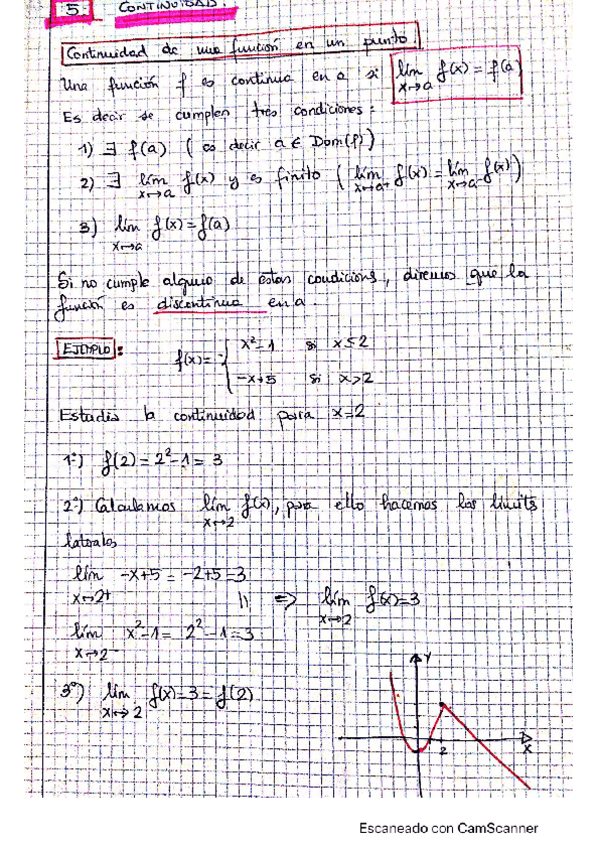 5. CONTINUIDAD.
Continuidad de una función en un punto.
Una función f es continua en a si lím x→a f(x) = f(a)
Es decir se cumplen tres condiciones:
1) ∃ f(a) (es decir a ∈ Dom(f))
2) ∃ lím x→a f(x) y es finito (lím x→a+ f(x) = lím x→a- f(x))
3) lím x→a f(x) = f(a)
Si no cumple alguna de estas condicions, diremos que la
función es discontinua en a.
EJEMPLO: f(x) = { x²-1 si x≤2
-x+5 si x>2
Estudia la continuidad para x=2
1º) f(2) = 2²-1 = 3
2º) Calculamos lím x→2 f(x), para ello hacemos los límits
laterales
lím x→2+ -x+5 = -2+5 = 3
|| ⇒ lím x→2 f(x) = 3
lím x→2- x²-1 = 2²-1 = 3
3º) lím x→2 f(x) = 3 = f(2)
Y
2
X
Escaneado con CamScanner